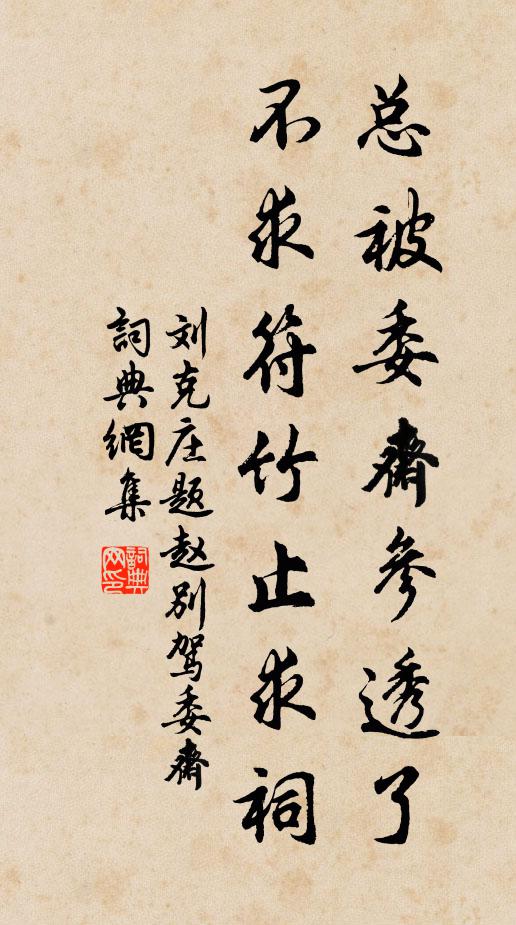 总被委斋参透了
不求符竹止求祠
刘克庄题赵别驾委斋
詞典網集
詞典网印